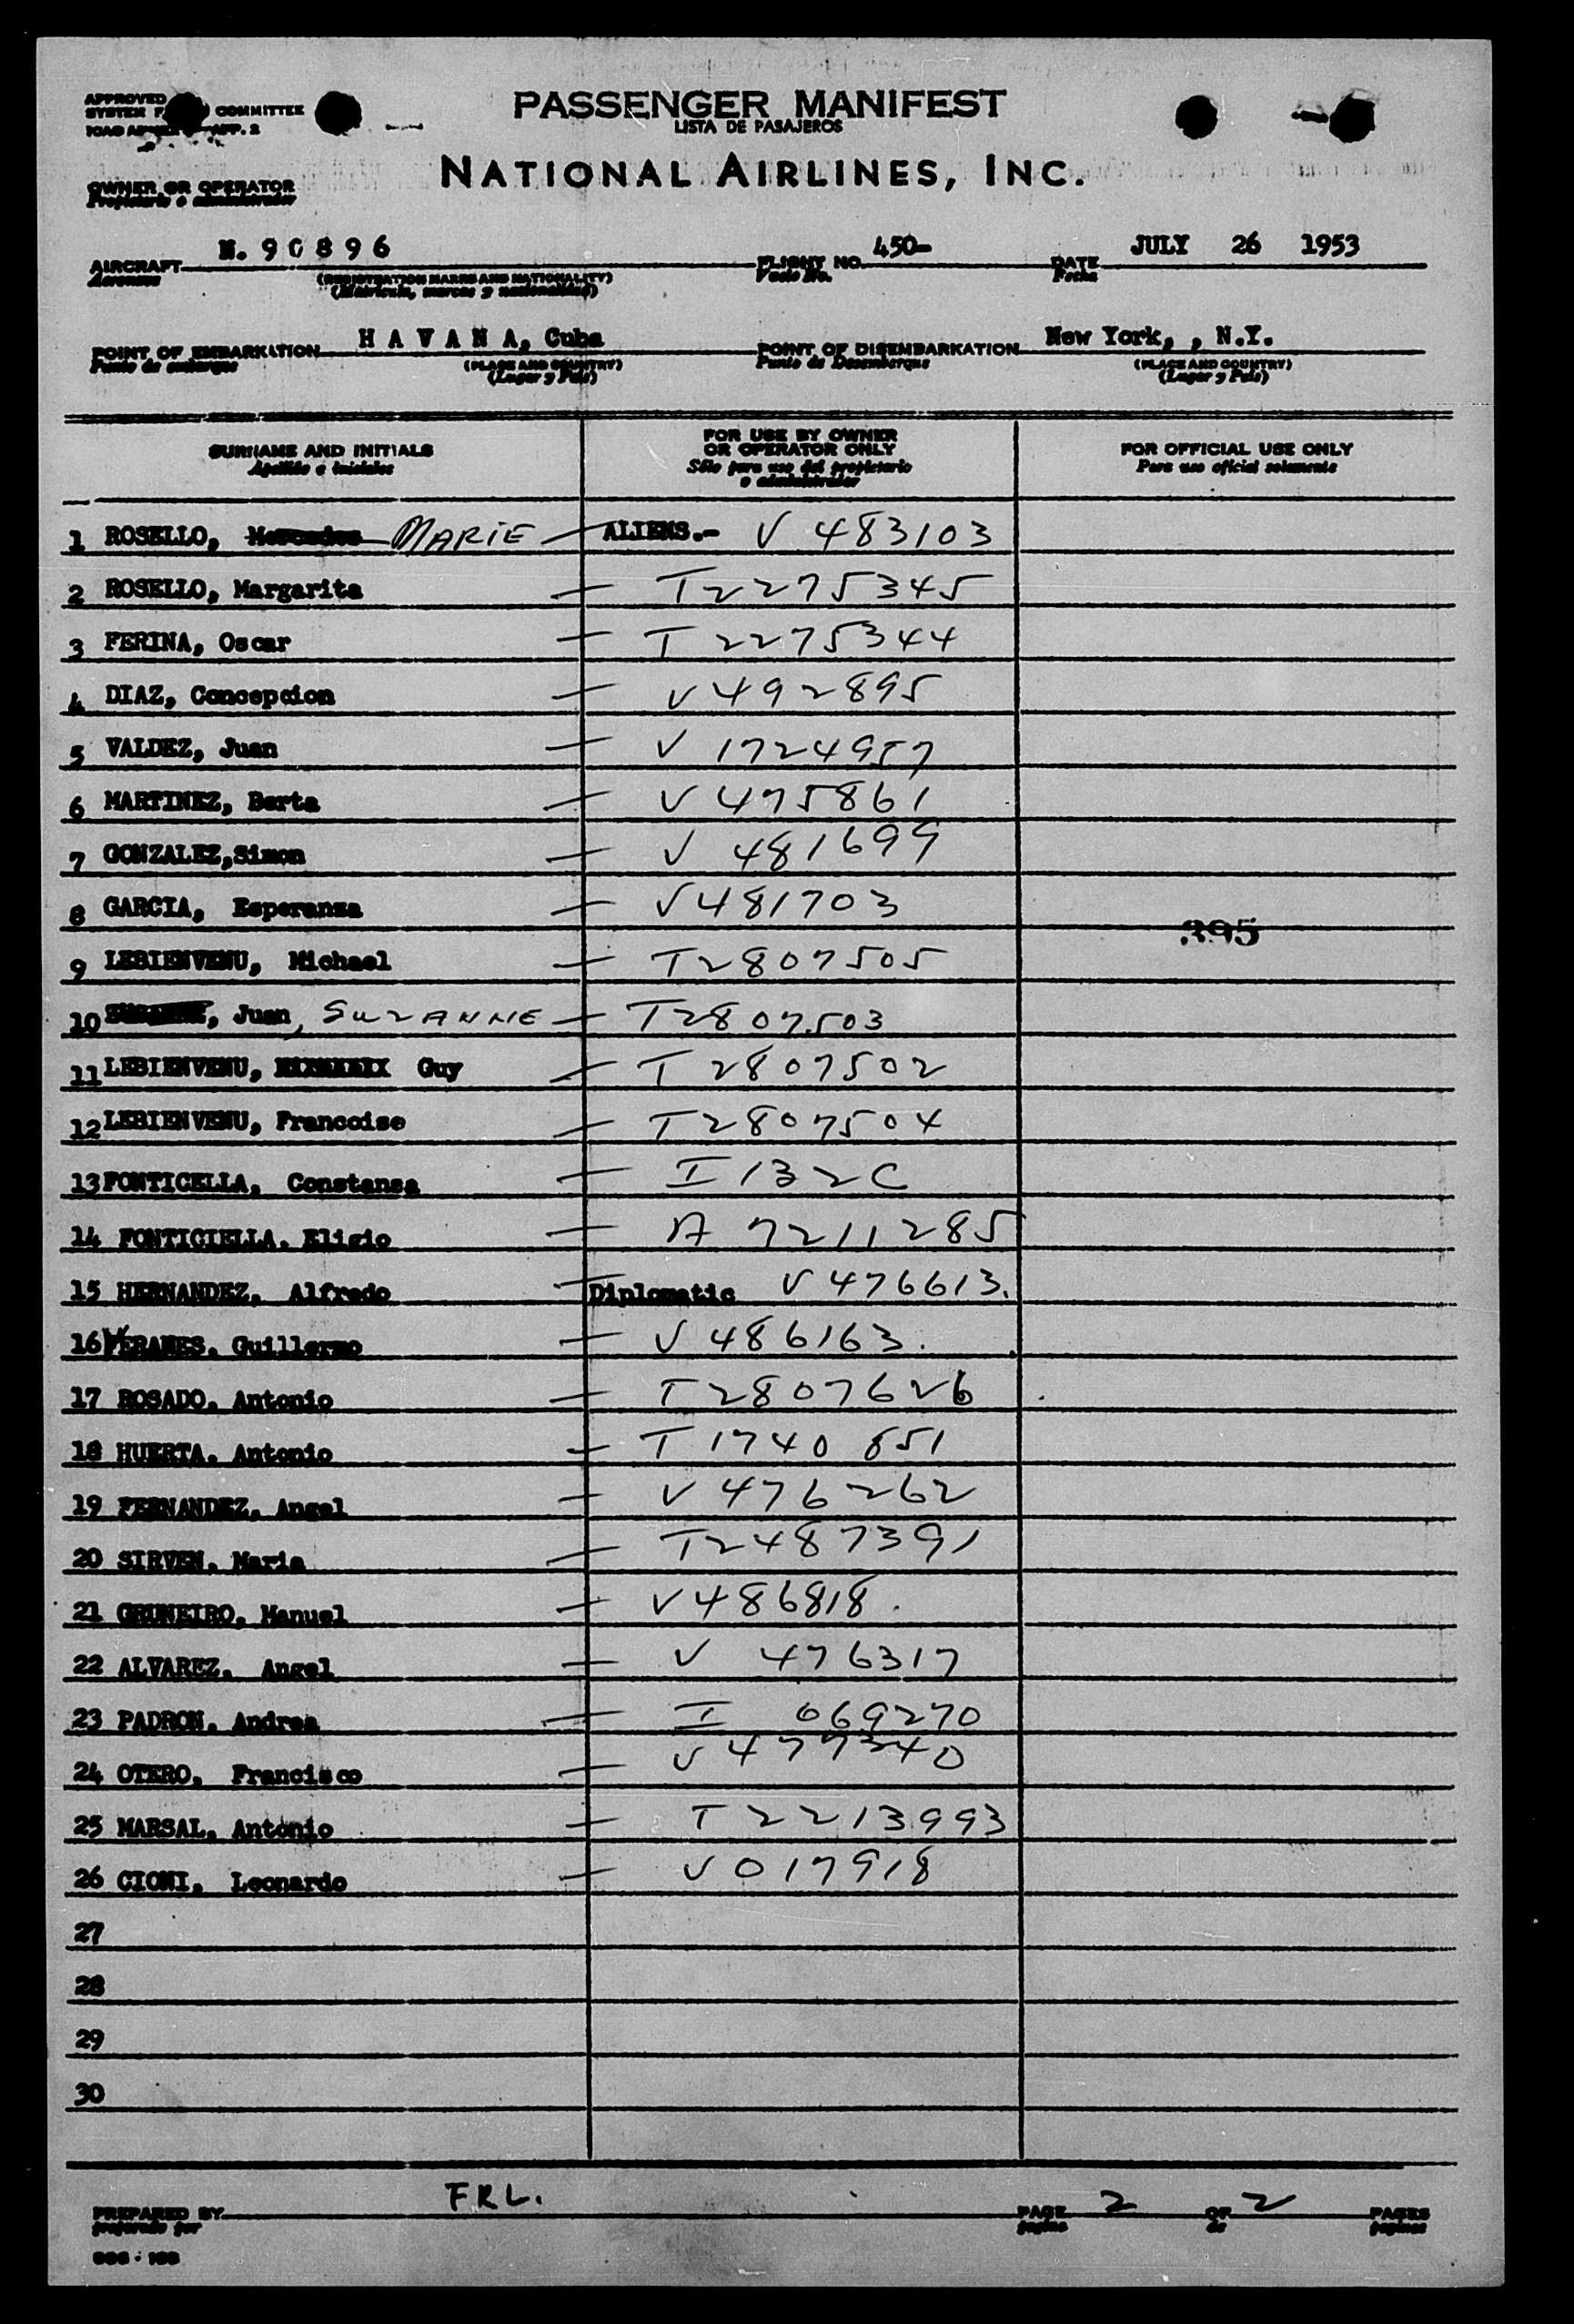 APPROVED COMMITTEE
SYSTEM
ICAO APP. 2
PASSENGER MANIFEST
LISTA DE PASAJEROS
NATIONAL AIRLINES, INC.
OWNER OR OPERATOR
Propietario o administrador
AIRCRAFT N. 90896 FLIGHT NO. 450- DATE JULY 26 1953
Aeronave (REGISTRATION MARKS AND NATIONALITY) Vuelo No. Fecha
(Matrícula, marcas y nacionalidad)
POINT OF EMBARKATION H A V A N A, Cuba POINT OF DISEMBARKATION New York, , N.Y.
Punto de embarque (PLACE AND COUNTRY) Punto de Desembarque (PLACE AND COUNTRY)
(Lugar y País) (Lugar y País)
SURNAME AND INITIALS FOR USE BY OWNER OR OPERATOR ONLY FOR OFFICIAL USE ONLY
Apellido e iniciales Sólo para uso del propietario o administrador Para uso oficial solamente
1 ROSELLO, Mercedes MARIE — ALIENS.- V 483103
2 ROSELLO, Margarita — T2275345
3 FERINA, Oscar — T 2275344
4 DIAZ, Concepcion — V492895
5 VALDEZ, Juan — V 1724957
6 MARTINEZ, Berta — V 475861
7 GONZALEZ,Simon — V 481699
8 GARCIA, Esperanza — V481703
395
9 LEBIENVENU, Michael — T2807505
10 , Juan, SUZANNE — T2807503
11 LEBIENVENU, Guy — T 2807502
12 LEBIENVENU, Francoise — T2807504
13 FONTICELLA, Constansa — I 132C
14 FONTICIELLA, Eligio — A 7211285
15 HERNANDEZ, Alfredo — Diplomatic V476613.
16 VERANES, Guillermo — V 486163.
17 ROSADO, Antonio — T2807626
18 HUERTA, Antonio — T 1740 851
19 FERNANDEZ, Angel — V 476262
20 SIRVEN, Maria — T2487391
21 GRUNEIRO, Manuel — V486818.
22 ALVAREZ, Angel — V 476317
23 PADRON, Andrea — I 069270
24 OTERO, Francisco — V477340
25 MARSAL, Antonio — T2213993
26 CIONI, Leonardo — V017918
27
28
29
30
PREPARED BY FRL. PAGE 2 OF 2 PAGES
preparado por pagina de paginas